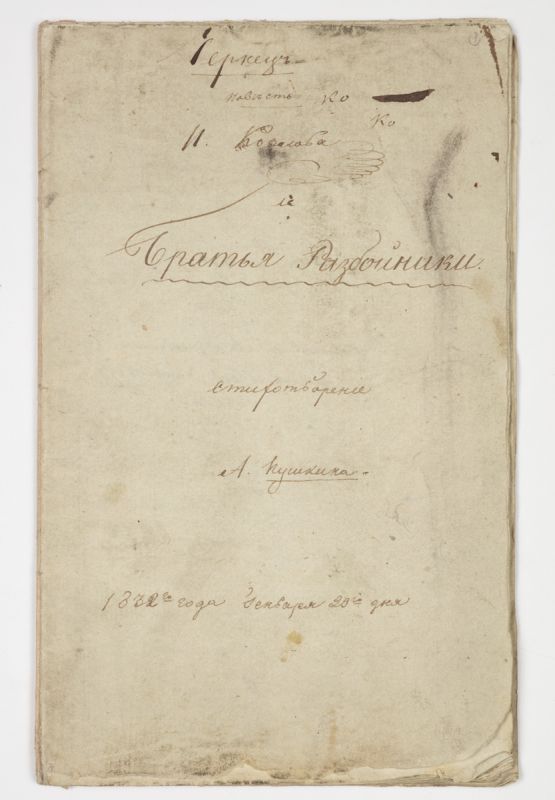 Чернецъ
повѣсть Ко
Ко
И. Козлова
и
Братья Разбойники.
стихотвореніе
А. Пушкина.
1832го года Генваря 29го дня